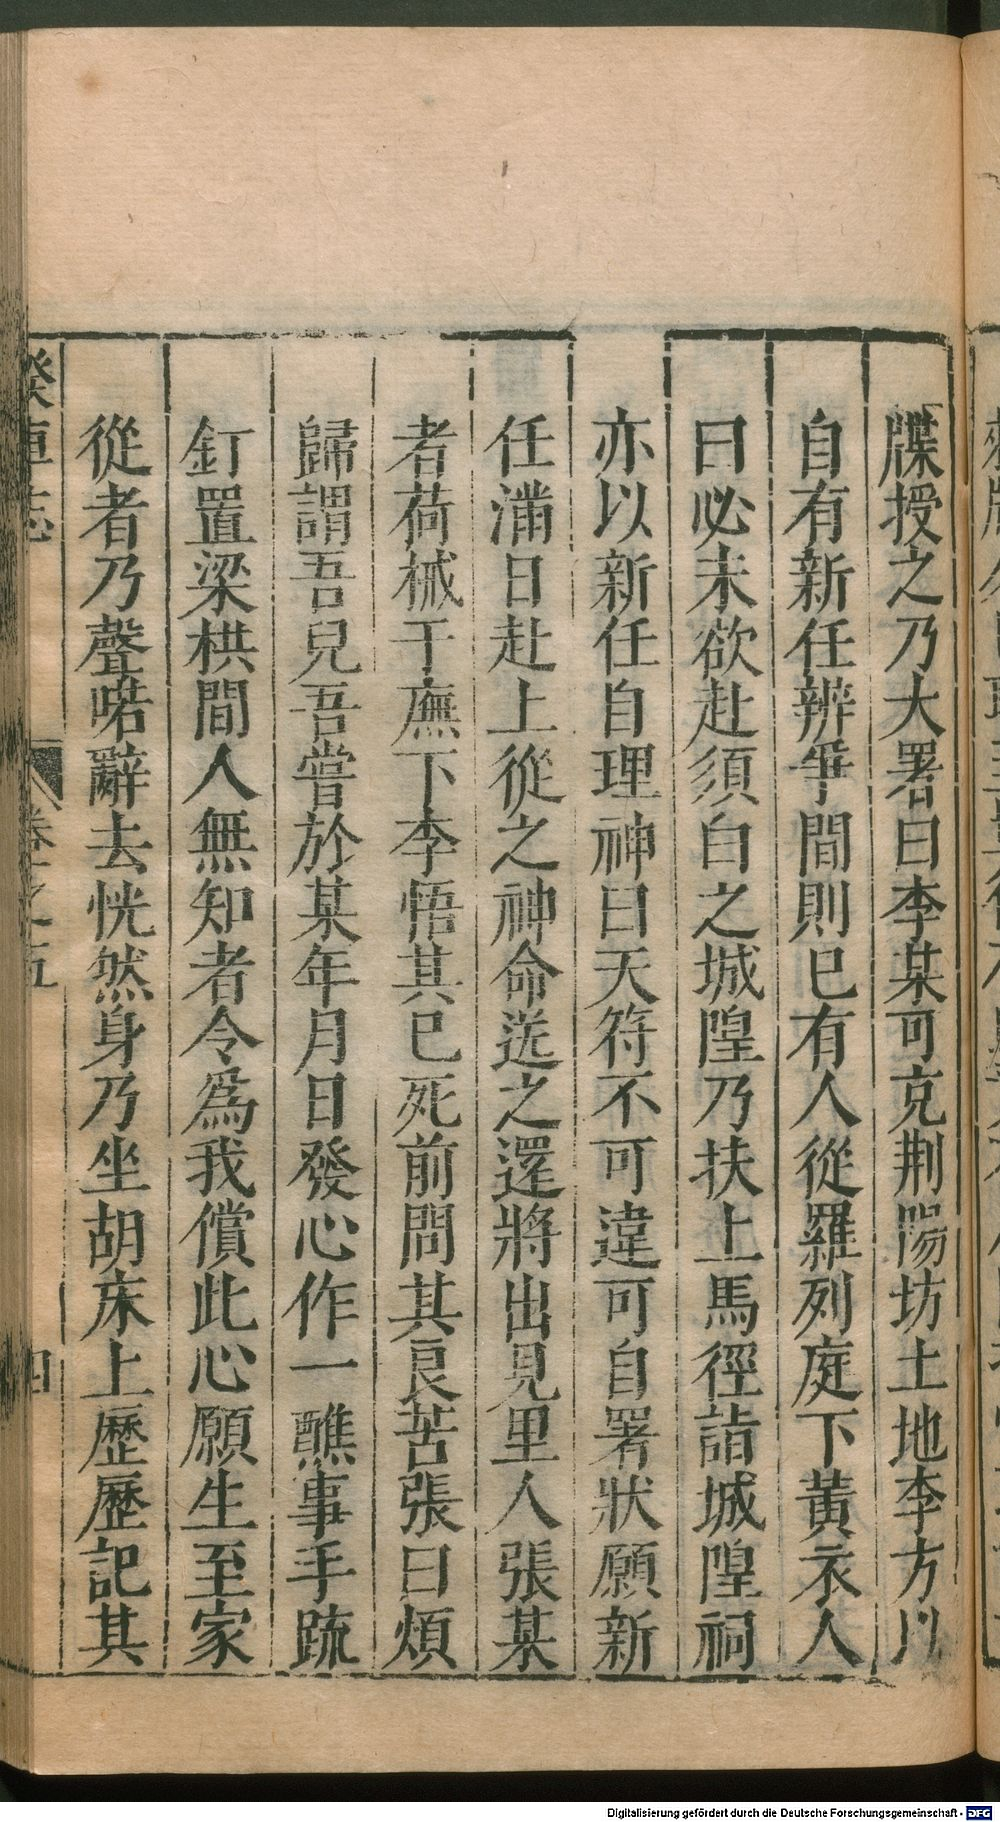 牒授之乃大署曰李某可克荆陽坊土地李方以
自有新任辨爭間則已有人從羅列庭下黃衣人
曰必未欲赴須白之城隍乃扶上馬徑詣城隍祠
亦以新任自理神曰天符不可違可自署狀願新
任滿日赴上從之神命送之還將出見里人張某
者荷械于廡下李悟其已死前問其良苦張曰煩
歸謂吾兒吾嘗於某年月日發心作一醮事手疏
釘置梁栱間人無知者令爲我償此心願生至家
從者乃聲喏辭去恍然身乃坐胡床上歷歷記其
睽車志 卷之五 四
Digitalisierung gefördert durch die Deutsche Forschungsgemeinschaft - DFG